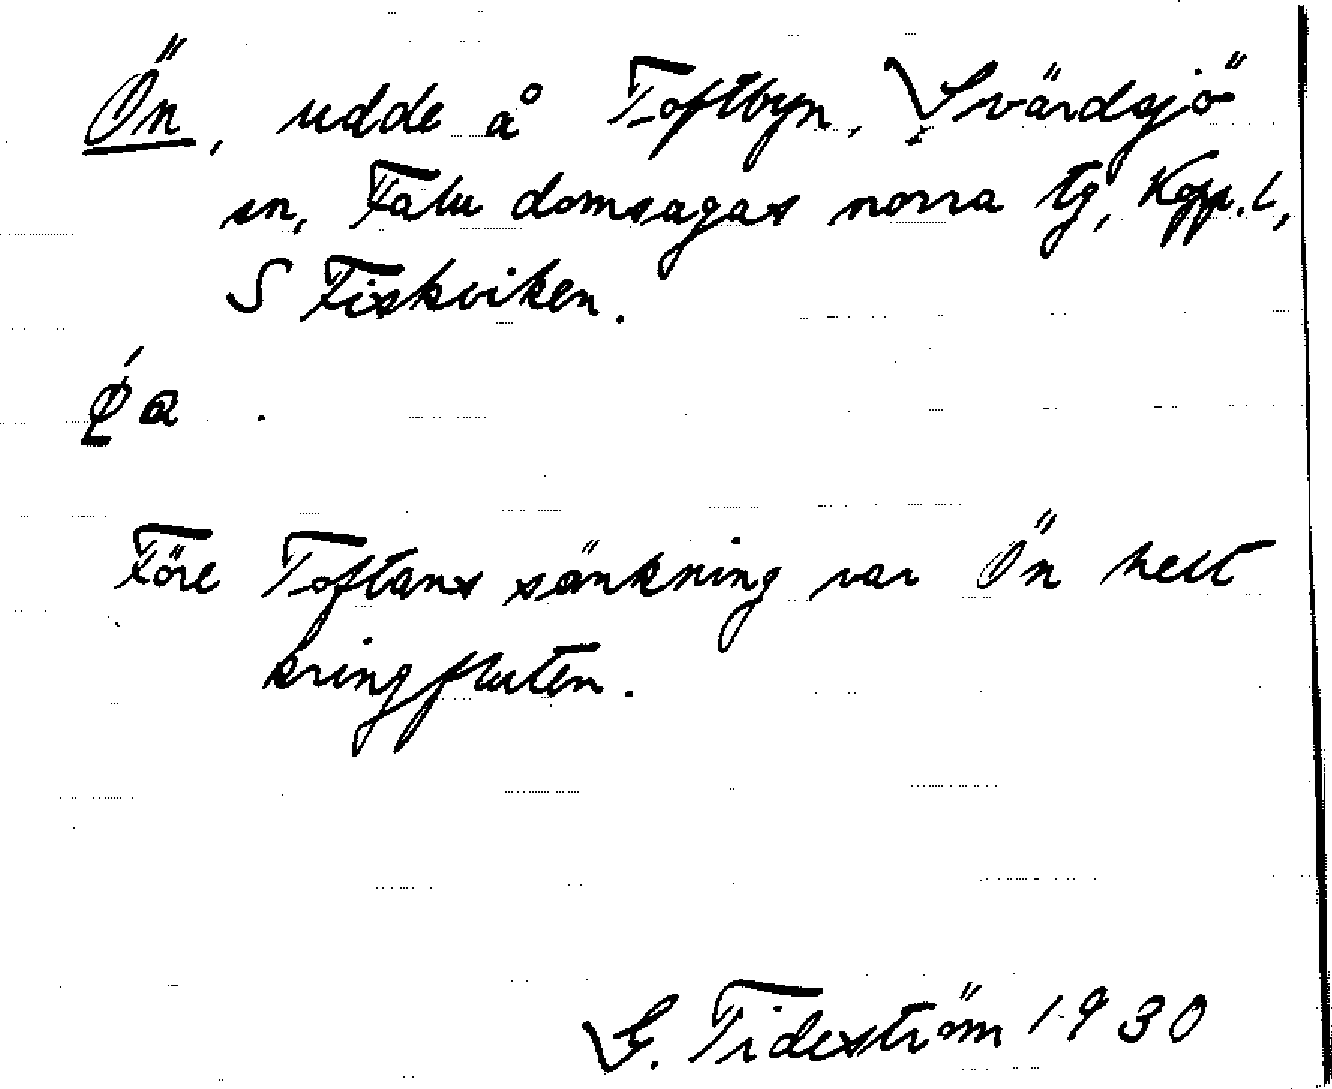 Ön, udde å Toftbyn, Svärdsjö
sn, Falu domsagas norra tg, Kopp. l,
S Fiskviken.
Före Toftans sänkning var Ön helt
kringfluten.
G. Tideström 1930